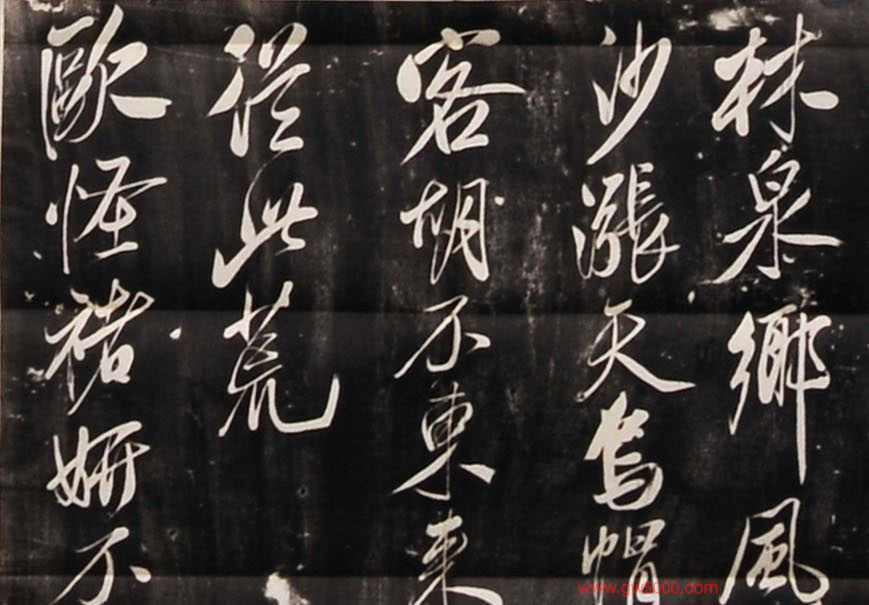 林泉鄉風
沙漲天烏帽
客胡不東來
從此荒
歐怪褚妍不
www.gw5000.com